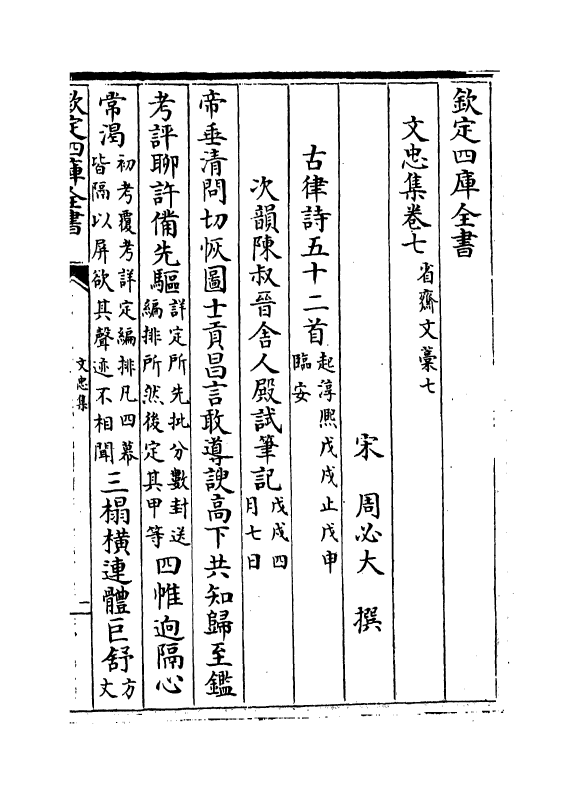 欽定四庫全書
文忠集卷七 省齋文藁七
宋 周必大 撰
古律詩五十二首 起淳熙戊戌止戊申臨安
次韻陳叔晉舍人殿試筆記 戊戌四月七日
帝垂清問切恢圖士貢昌言敢導諛高下共知歸至鑑
考評聊許備先驅 詳定所先批分數封送編排所然後定其甲等 四帷逈隔心
常渴 初考覆考詳定編排凡四幕皆隔以屏欲其聲迹不相聞 三榻橫連體巨舒 方丈
欽定四庫全書
文忠集
一